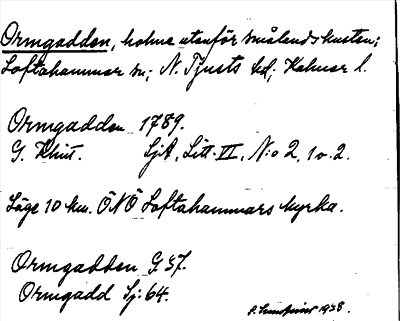 Ormgadden, holme utanför Smålandskusten;
Loftahammar sn; N. Tjusts hd; Kalmar l.
Ormgadden 1789.
G. Klint. SjA, Litt. VI, N:o 2, 1 o. 2.
Läge 10 km. ÖNÖ Loftahammars kyrka.
Ormgadden G 57.
Ormgadd Sj: 64.
1938.